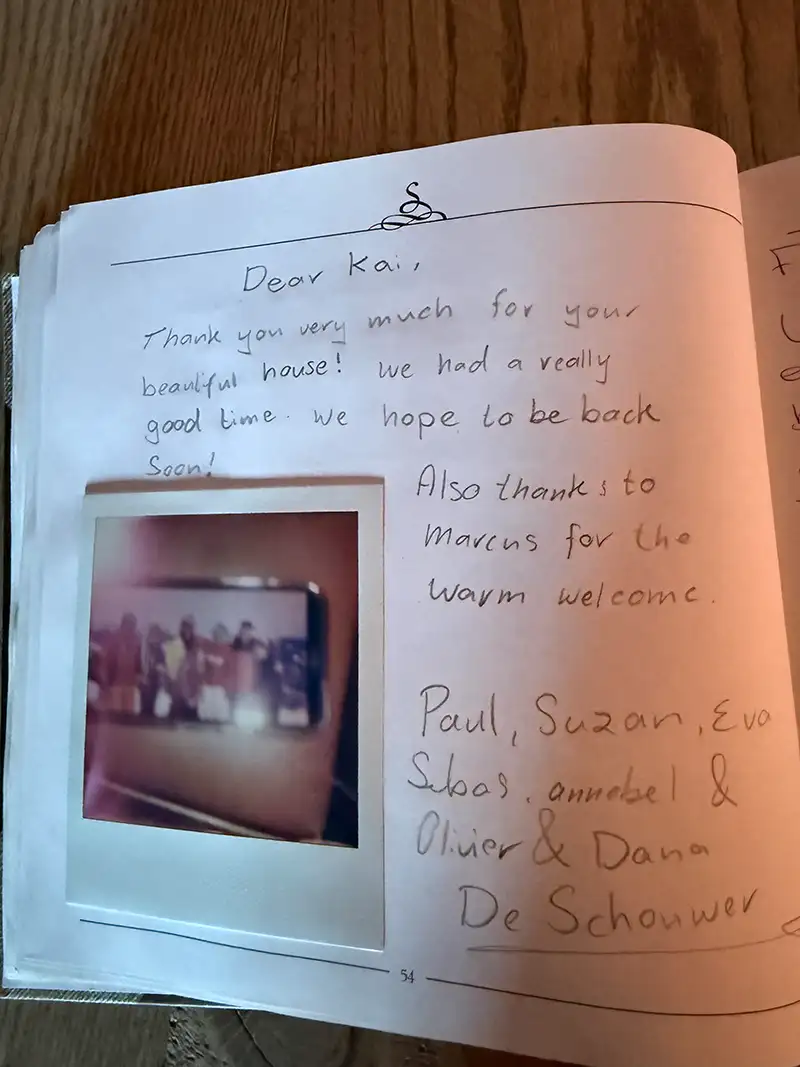 Dear Kai,
Thank you very much for your
beautiful house! we had a really
good time. we hope to be back
Soon!
Also thanks to
Marcus for the
warm welcome.
Paul, Suzan, Eva
Sebas, annebel &
Olivier & Dana
De Schouwer
54